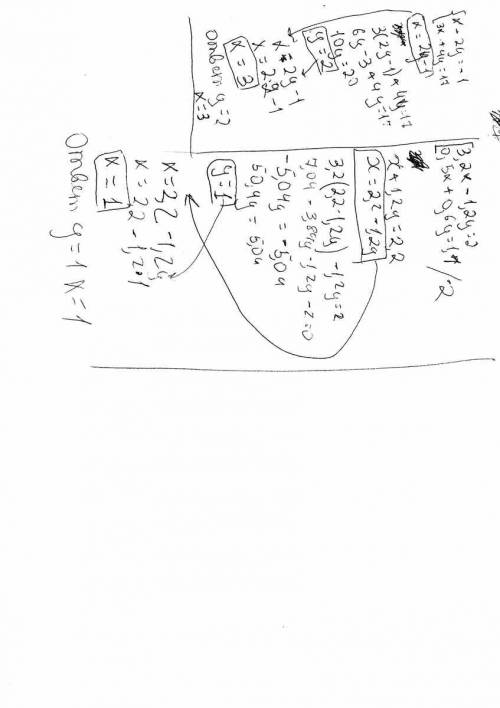 x - 2y = -1
3x + 4y = 17
x = 2y-1
3(2y-1)+4y=17
6y-3+4y=17
10y=20
y=2
x=2y-1
x=2·2-1
x=3
Ответ y=2
x=3
3,2x-1,2y=2
0,5x+0,6y=1,1 /·2
x+1,2y=2,2
x=2,2-1,2y
3,2(2,2-1,2y)-1,2y=2
7,04-3,84y-1,2y-2=0
-5,04y=-5,04
5,04y=5,04
y=1
x=2,2-1,2y
x=2,2-1,2·1
x=1
Ответ y=1 x=1